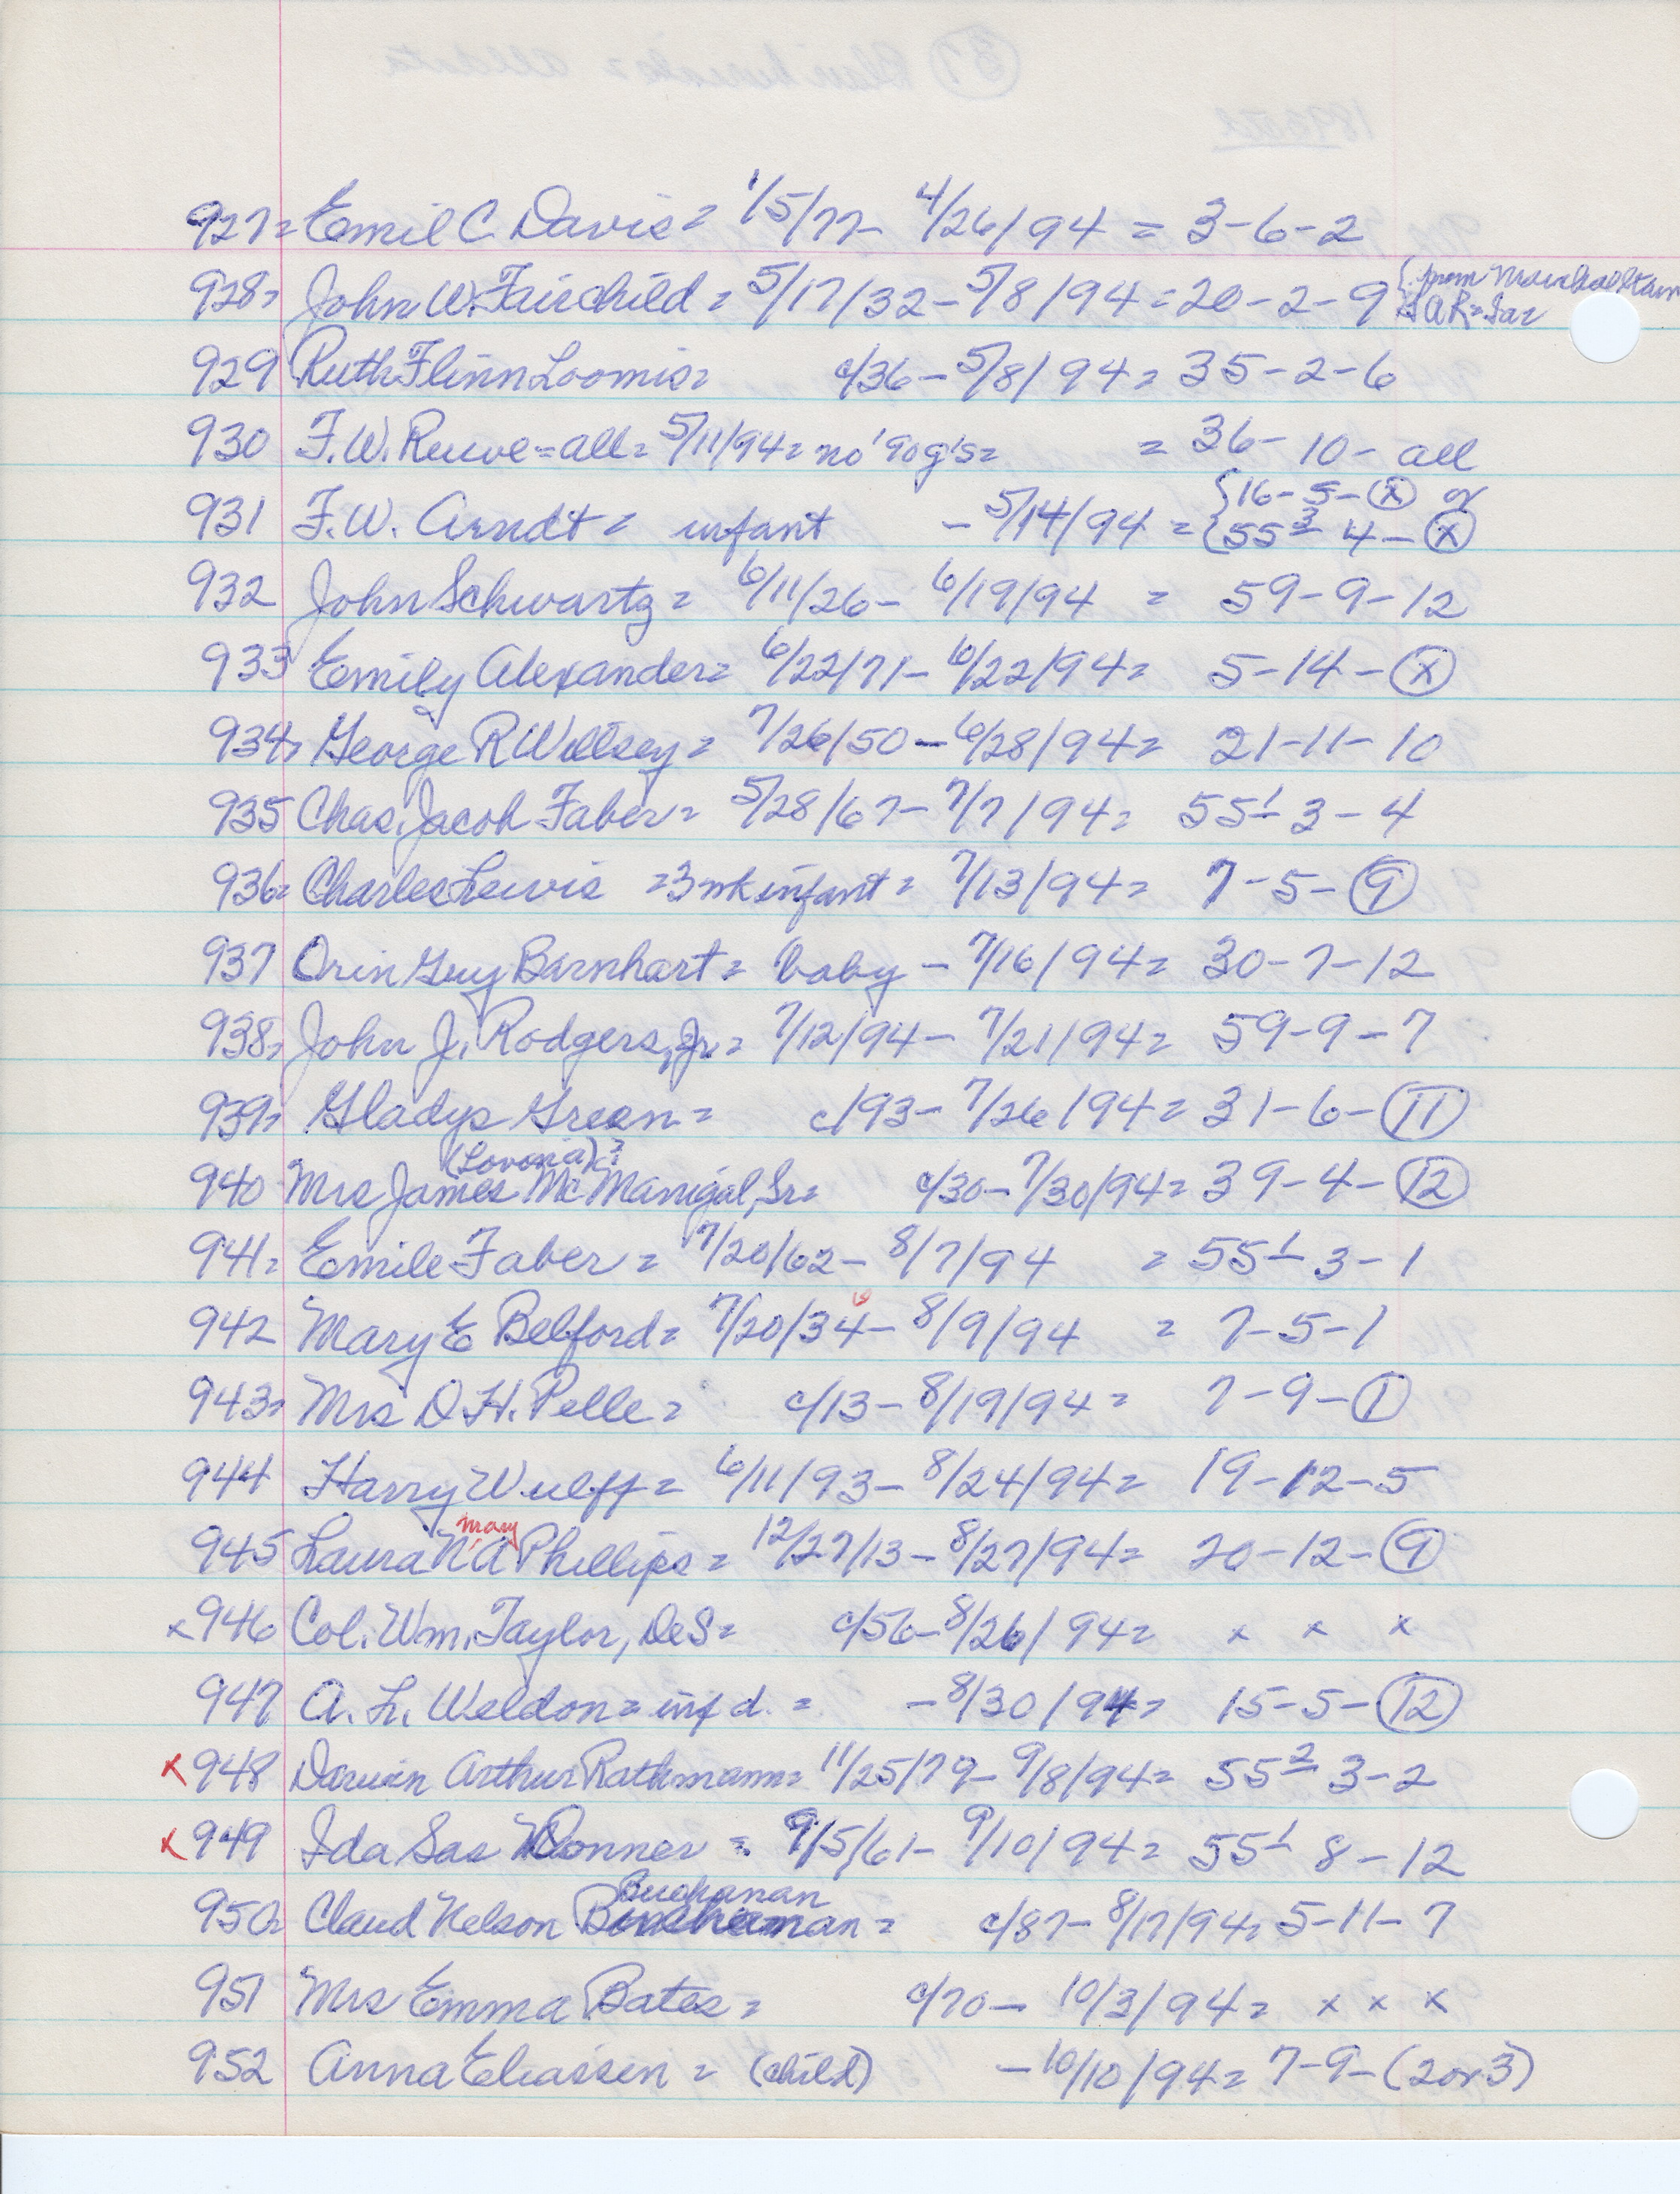 927= Emil C. Davis = 1/5/77 - 4/26/94 = 3-6-2
928= John W. Fairchild = 5/17/32 - 5/8/94 = 20-2-9 { from Marshalltown
GAR = Ia =
929 Ruth Flinn Loomis = c/36 - 5/8/94 = 35-2-6
930 F.W. Ruwe = all = 5/11/94 = no '90 g's = = 36-10-all
{16-5-(X) or
931 F.W. Arndt = infant - 5/14/94 = {55³ 4-(X)
932 John Schwartz = 6/11/26 - 6/19/94 = 59-9-12
933 Emily Alexander = 6/22/71 - 6/22/94 = 5-14-(X)
934= George R Willsey = 7/26/50 - 6/28/94 = 21-11-10
935 Chas. Jacob Faber = 5/28/67 - 7/7/94 = 55¹ 3-4
936= Charles Lewis = 3 mk infant = 7/13/94 = 7-5-(9)
937 Orin Guy Barnhart = baby - 7/16/94 = 30-7-12
938= John J. Rodgers, Jr. = 7/12/94 - 7/21/94 = 59-9-7
939= Gladys Green = c/93 - 7/26/94 = 31-6-(11)
(Lovona)?
940 Mrs James McManigal, Sr = c/30 - 7/30/94 = 39-4-(12)
941= Emile Faber = 7/20/62 - 8/7/94 = 55¹ 3-1
942 Mary E Belford = 7/20/34 - 8/9/94 = 7-5-1
943= Mrs D.H. Pelle = c/13 - 8/19/94 = 7-9-(1)
944 Harry Wulff = 6/11/93 - 8/24/94 = 19-12-5
mary
945 Laura N A Phillips = 12/27/13 - 8/27/94 = 20-12-(9)
x 946 Col. Wm. Taylor, DeS = c/56 - 8/26/94 = x x x
947 A. L. Weldon = inf d. = - 8/30/94 = 15-5-(12)
x 948 Darwin Arthur Rathmann = 11/25/79 - 9/8/94 = 55² 3-2
x 949 Ida Sas Donner = 9/5/61 - 9/10/94 = 55¹ 8-12
Buchanan
950= Claud Nelson = c/87 - 8/17/94 = 5-11-7
951 Mrs Emma Bates = c/70 - 10/3/94 = x x x
952 Anna Eliassen = (child) - 10/10/94 = 7-9-(2 or 3)